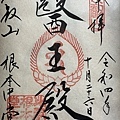 奉拝
令和四年
十月二十六日
醫王殿
比叡山 根本中堂